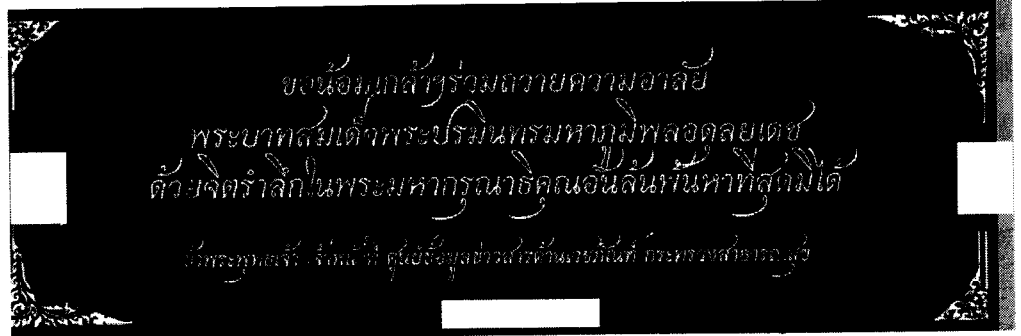 ขอน้อมเกล้าฯร่วมถวายความอาลัย
พระบาทสมเด็จพระปรมินทรมหาภูมิพลอดุลยเดช
ด้วยจิตรำลึกในพระมหากรุณาธิคุณอันล้นพ้นหาที่สุดมิได้
ศูนย์ข้อมูลข่าวสารด้านเวชภัณฑ์ กระทรวงสาธารณสุข